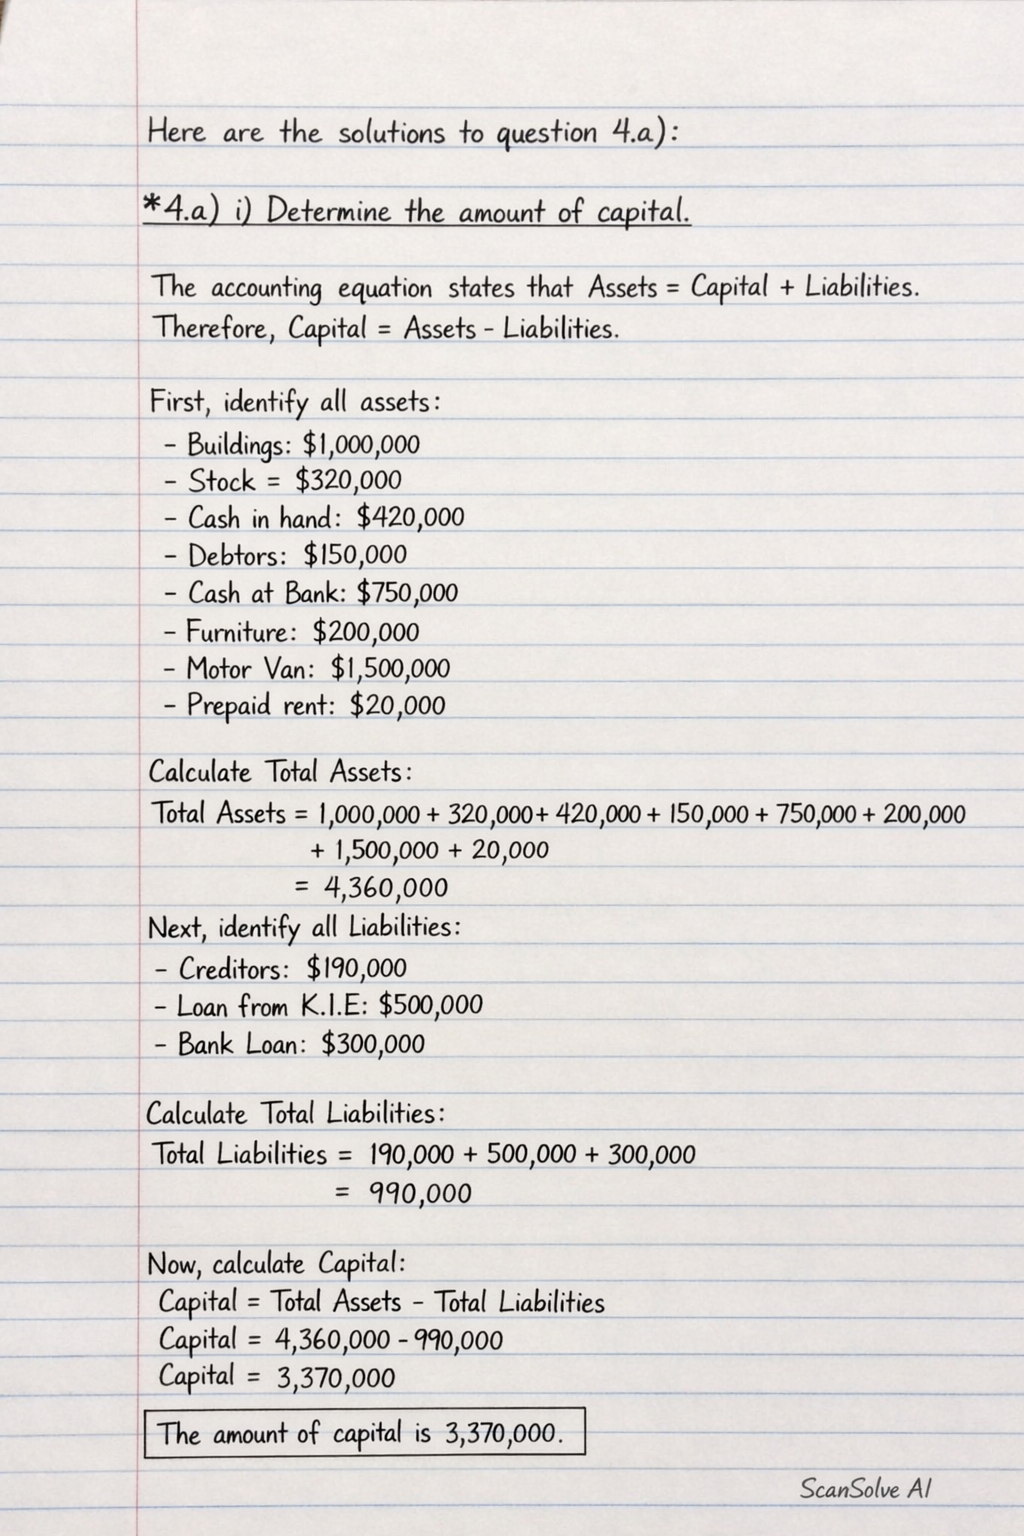 Here are the solutions to question 4.a):
*4.a) i) Determine the amount of capital.
The accounting equation states that Assets = Capital + Liabilities.
Therefore, Capital = Assets - Liabilities.
First, identify all assets:
- Buildings: $1,000,000
- Stock = $320,000
- Cash in hand: $420,000
- Debtors: $150,000
- Cash at Bank: $750,000
- Furniture: $200,000
- Motor Van: $1,500,000
- Prepaid rent: $20,000
Calculate Total Assets:
Total Assets = 1,000,000 + 320,000+ 420,000 + 150,000 + 750,000 + 200,000
+ 1,500,000 + 20,000
= 4,360,000
Next, identify all Liabilities:
- Creditors: $190,000
- Loan from K.I.E: $500,000
- Bank Loan: $300,000
Calculate Total Liabilities:
Total Liabilities = 190,000 + 500,000 + 300,000
= 990,000
Now, calculate Capital:
Capital = Total Assets - Total Liabilities
Capital = 4,360,000 - 990,000
Capital = 3,370,000
The amount of capital is 3,370,000.
ScanSolve AI